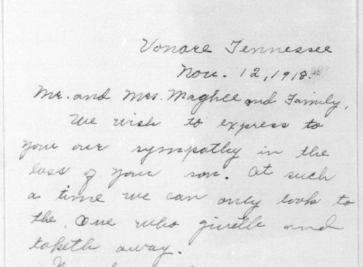 Vonore Tennessee
Nov. 12, 1918.
Mr. and Mrs. Maghee and Family,
We wish to express to
you our sympathy in the
loss of your son. At such
a time we can only look to
the One who giveth and
taketh away.